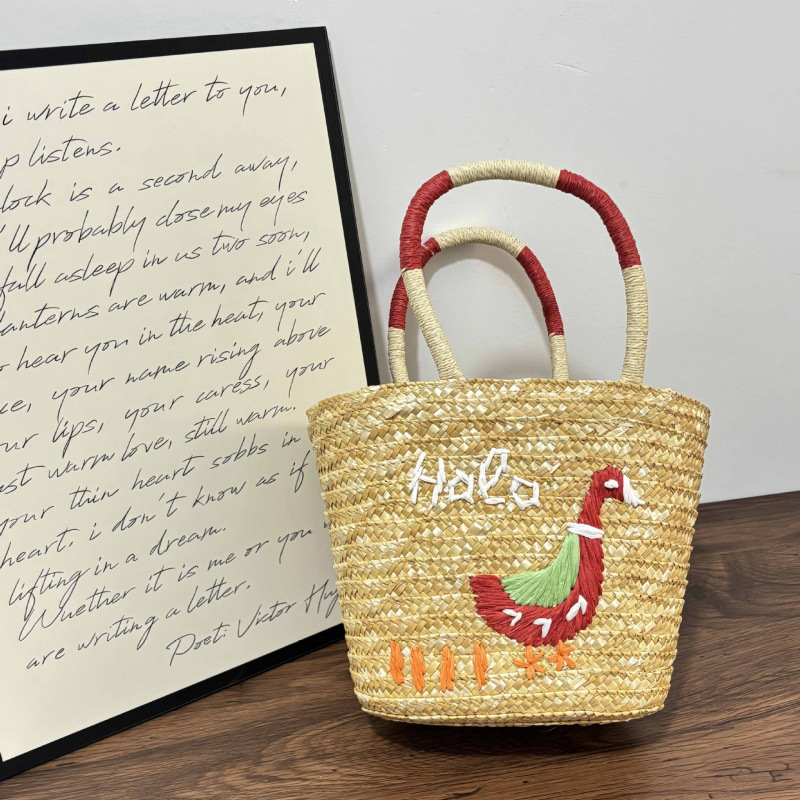 i write a letter to you,
p listens.
lock is a second away,
'll probably close my eyes
fall asleep in us two soon,
lanterns are warm, and i'll
hear you in the heat, your
ce, your name rising above
ur lips, your caress, your
st warm love, still warm.
your thin heart sobbs in
heart. i don't know as if
lifting in a dream.
Wuether it is me or you
are writing a letter.
Poet: Victor Hug
Halo